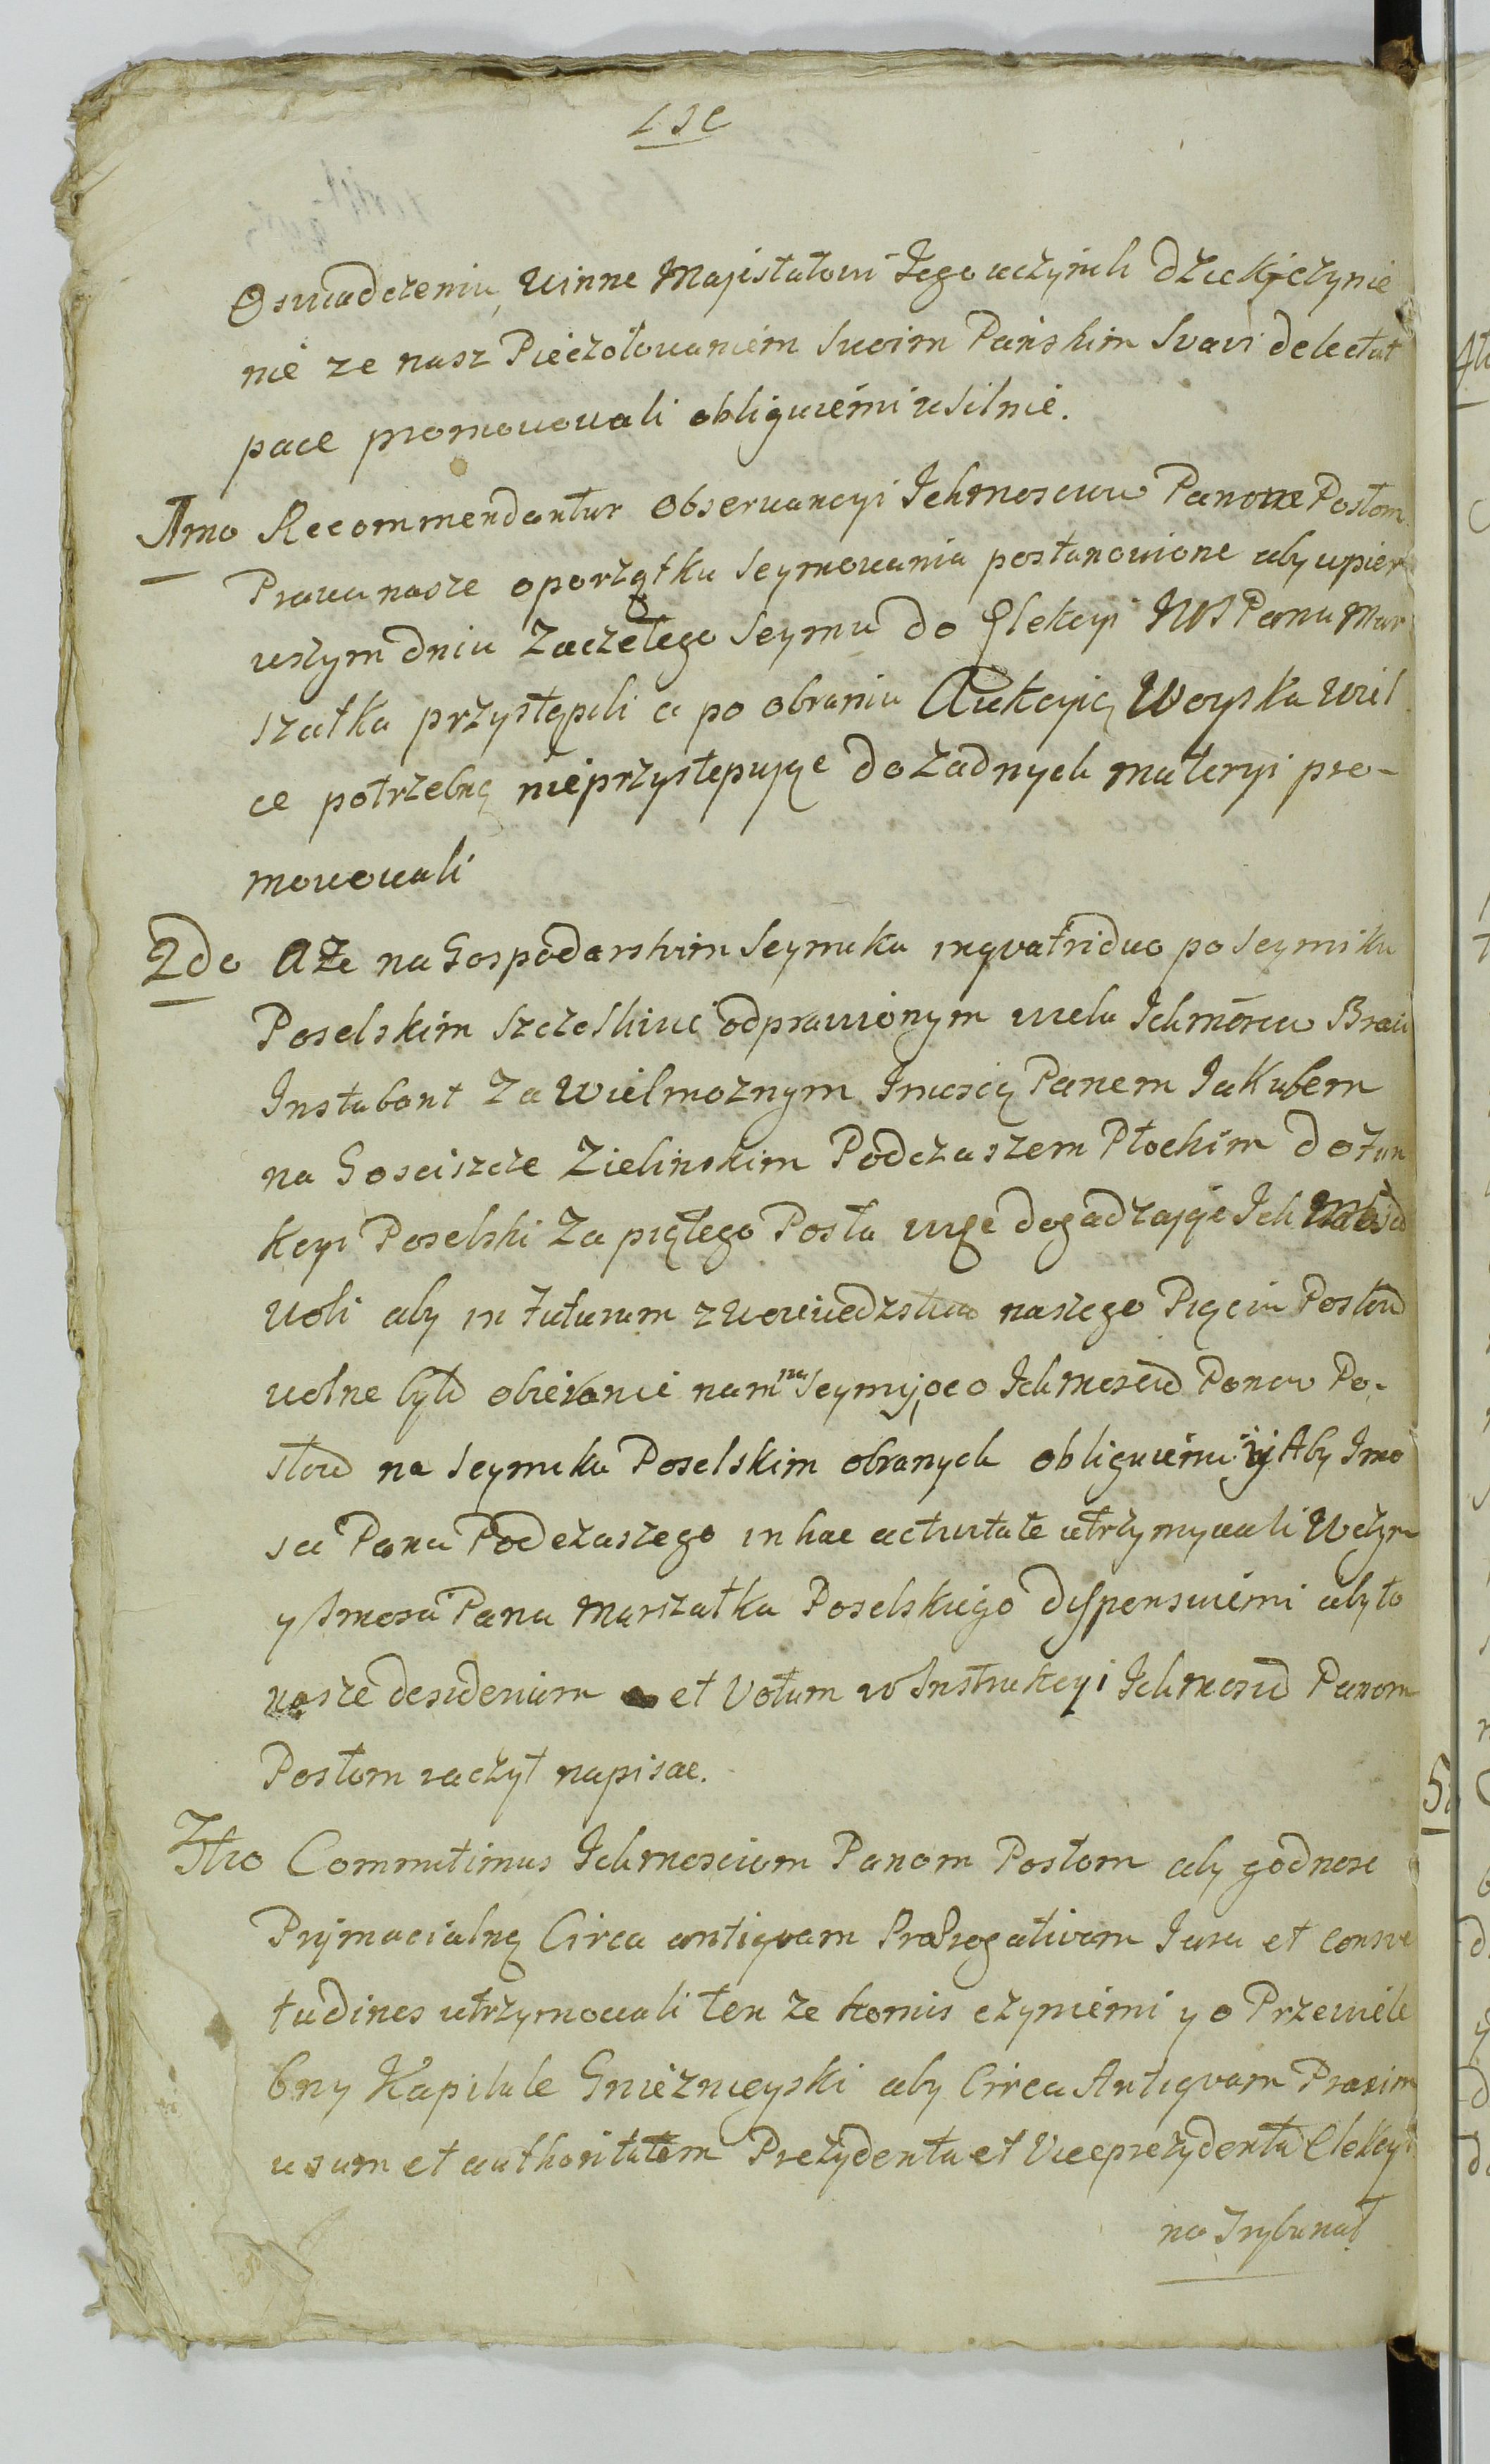 Oswiadczeniu winne Majistatowi Jego uczynili dziękczynie
nie ze nasz Pieczołowaniem Swoim Pańskim Svavi delectat
pace promowowali obliguiemi usilnie.
1mo Recommendantur Observancyi Ichmosciow Panom Posłom
Prawa nasze oporządku Seymowania postanowione aby wpier
wszym dniu Zaczętego Seymu do Elekcyi JMS Pana Mar
szałka przystąpili a po obraniu Aukcyią Woyska wiel
ce potrzebną nieprzystępuiąc do Zadnych materyi pro-
mowowali
2do A Ze na Gospodarskim Seymiku inqvatriduo po Seymiku
Poselskim Szczesliwie odprawionym wielu Ichmościow Braci
Instabant Za Wielmoznym Jmoscią Panem Jakubem
na Gosciszcze Zielinskim Podczaszem Płockim do fun
kcyi Poselski Za piątego Posła więc dogadzaiąc Ich
woli aby in futurum z wowiewedzstwa naszego Pięciu Posłow
wolne było obieranie nam na Seymy, oco Ichmosciow Panow Po-
słow na Seymiku Poselskim obranych obliguiemy Aby Jmo
sci Pana Podczaszego in hac activitate utrzymywali Wczym
y Jmosci Pana Marszałka Poselskiego dyspensuiemi aby to
nasze desiderium et Votum w Instrukcyi Ichmosciow Panom
Posłom raczył napisac.
3tio Committimus Ichmosciom Panom Posłom aby godnosc
Pryimacialną Circa antiqvam Prærogativam Jura et consve
tudines utrzymowali ten ze komis czyniemi y o Przewiele
bny Kapitule Gnieznieyski aby Circa Antiqvam Praxim
usum et authoritatem Prezydenta et Viceprezydenta Elekcyi
na Trybunał